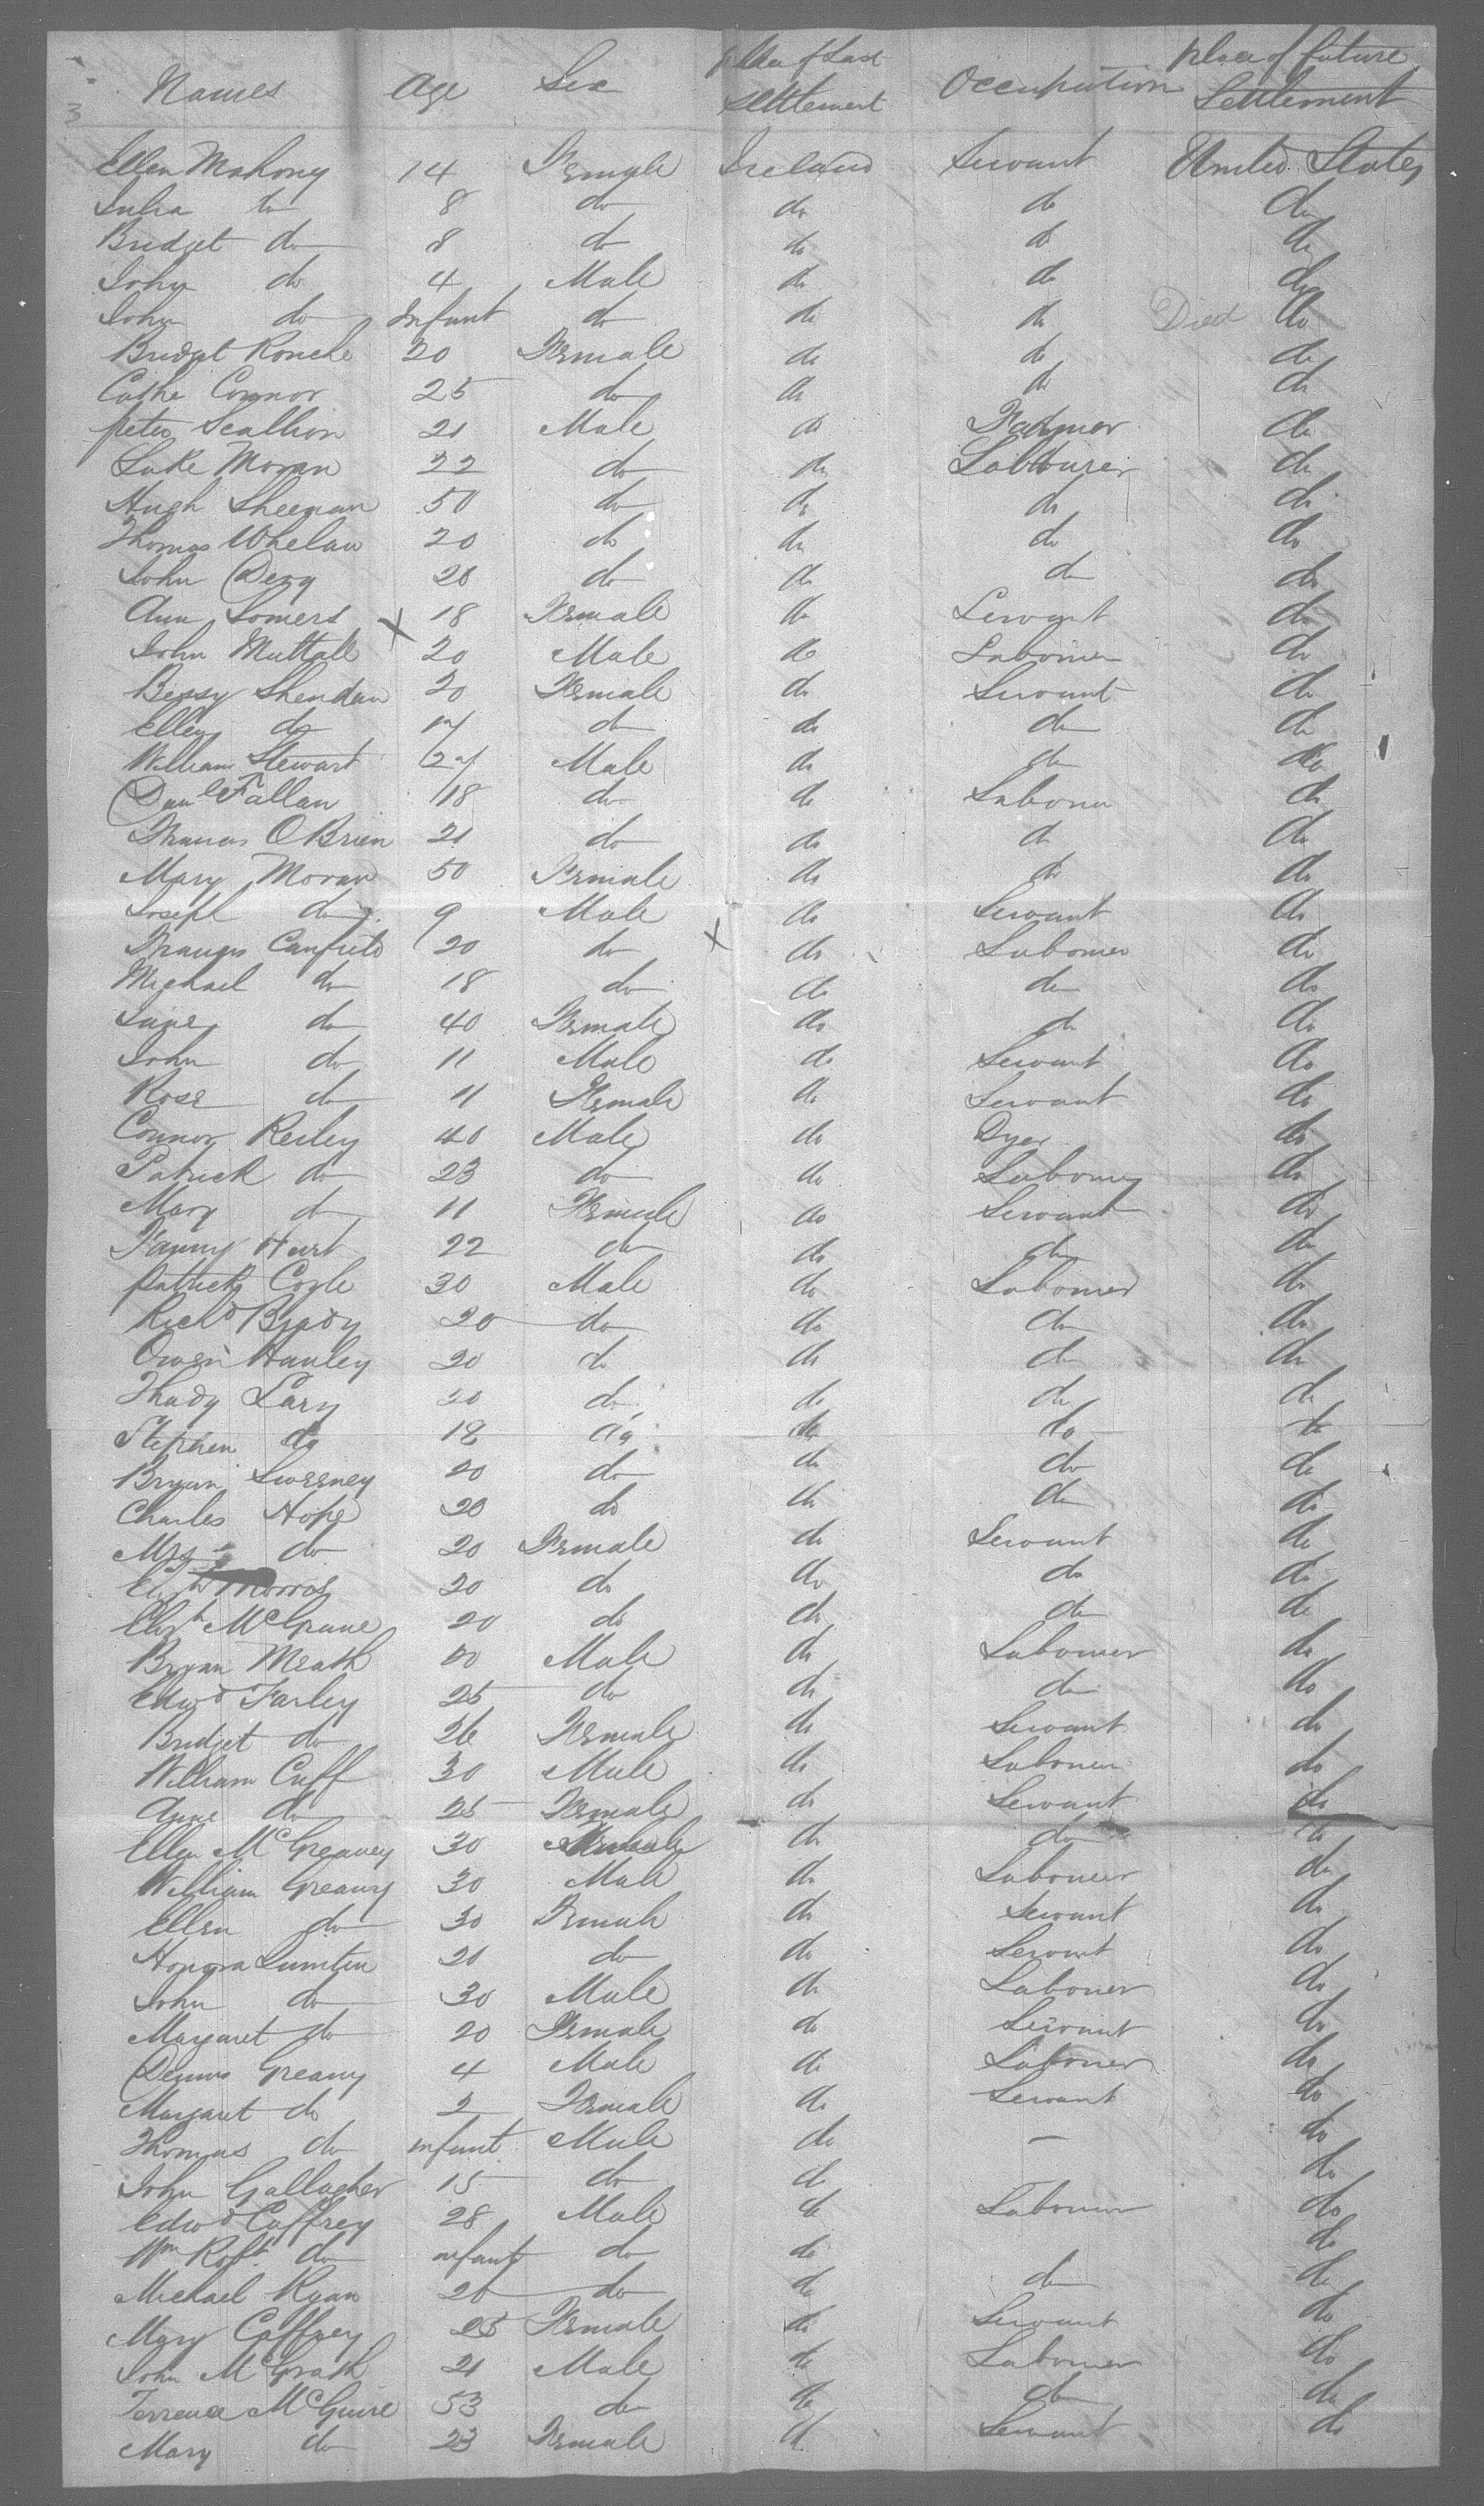 3
Names Age Sex place of Last settlement Occupation place of future Settlement
Ellen Mahony 14 Female Ireland Servant United States
Julia do 8 do do do do
Bridget do 8 do do do do
John do 4 Male do do do
John do Infant do do do Died do
Bridget Rouche 20 Female do do do
Cathe Connor 25 do do do do
peter Scallion 21 Male do Farmer do
Luke Moran 22 do do Labourer do
Hugh Sheenan 50 do do do do
Thomas Whelan 20 do do do do
John Dery 28 do do do do
Ann Somers X 18 Female do Servant do
John Muttall 20 Male do Labourer do
Bessy Sheridan 20 Female do Servant do
Ellen do 17 do do do do
William Stewart 27 Male do do do
Danl Fallan 18 do do Labour do
Francis O Brien 21 do do do do
Mary Moran 50 Female do do do
Joseph do 9 Male do Servant do
Francis Canfield 20 do X do Labourer do
Michael do 18 do do do do
Jane do 40 Female do do do
John do 11 Male do Servant do
Rose do 11 Female do Servant do
Connor Reiley 40 Male do Dyer do
Patrick do 23 do do Labourer do
Mary do 11 Female do Servant do
Fanny Hart 22 do do do do
patrick Coyle 30 Male do Labourer do
Richd Brady 20 do do do do
Owen Hanley 20 do do do do
Thady Lary 20 do do do do
Stephen do 18 do do do do
Bryan Sweeney 20 do do do do
Charles Hope 20 do do do do
Mrs do 20 Female do Servant do
Elizth Morris 20 do do do do
Elizth McGrane 20 do do do do
Bryan Meath 50 Male do Labourer do
Edwd Farley 25 do do do do
Bridget do 26 Female do Servant do
William Cuff 30 Male do Labourer do
Anne do 25 Female do Servant do
Ellen McGreavey 30 do do do
William Greavy 30 Male do Labourer do
Ellen do 30 Female do Servant do
Honora Lumten 20 do do Servant do
John do 30 Male do Labourer do
Margaret do 20 Female do Servant do
Dennis Greavy 4 Male do Labourer do
Margaret do 2 Female do Servant do
Thomas do infant Male do — do
John Gallagher 15 do do do
Edwd Caffrey 28 Male do Labourer do
Wm Robt do infant do do do
Michael Ryan 26 do do do do
Mary Caffrey 25 Female do Servant do
John McGrath 21 Male do Labourer do
Terrence McGuire 53 do do do do
Mary do 23 Female do Servant do